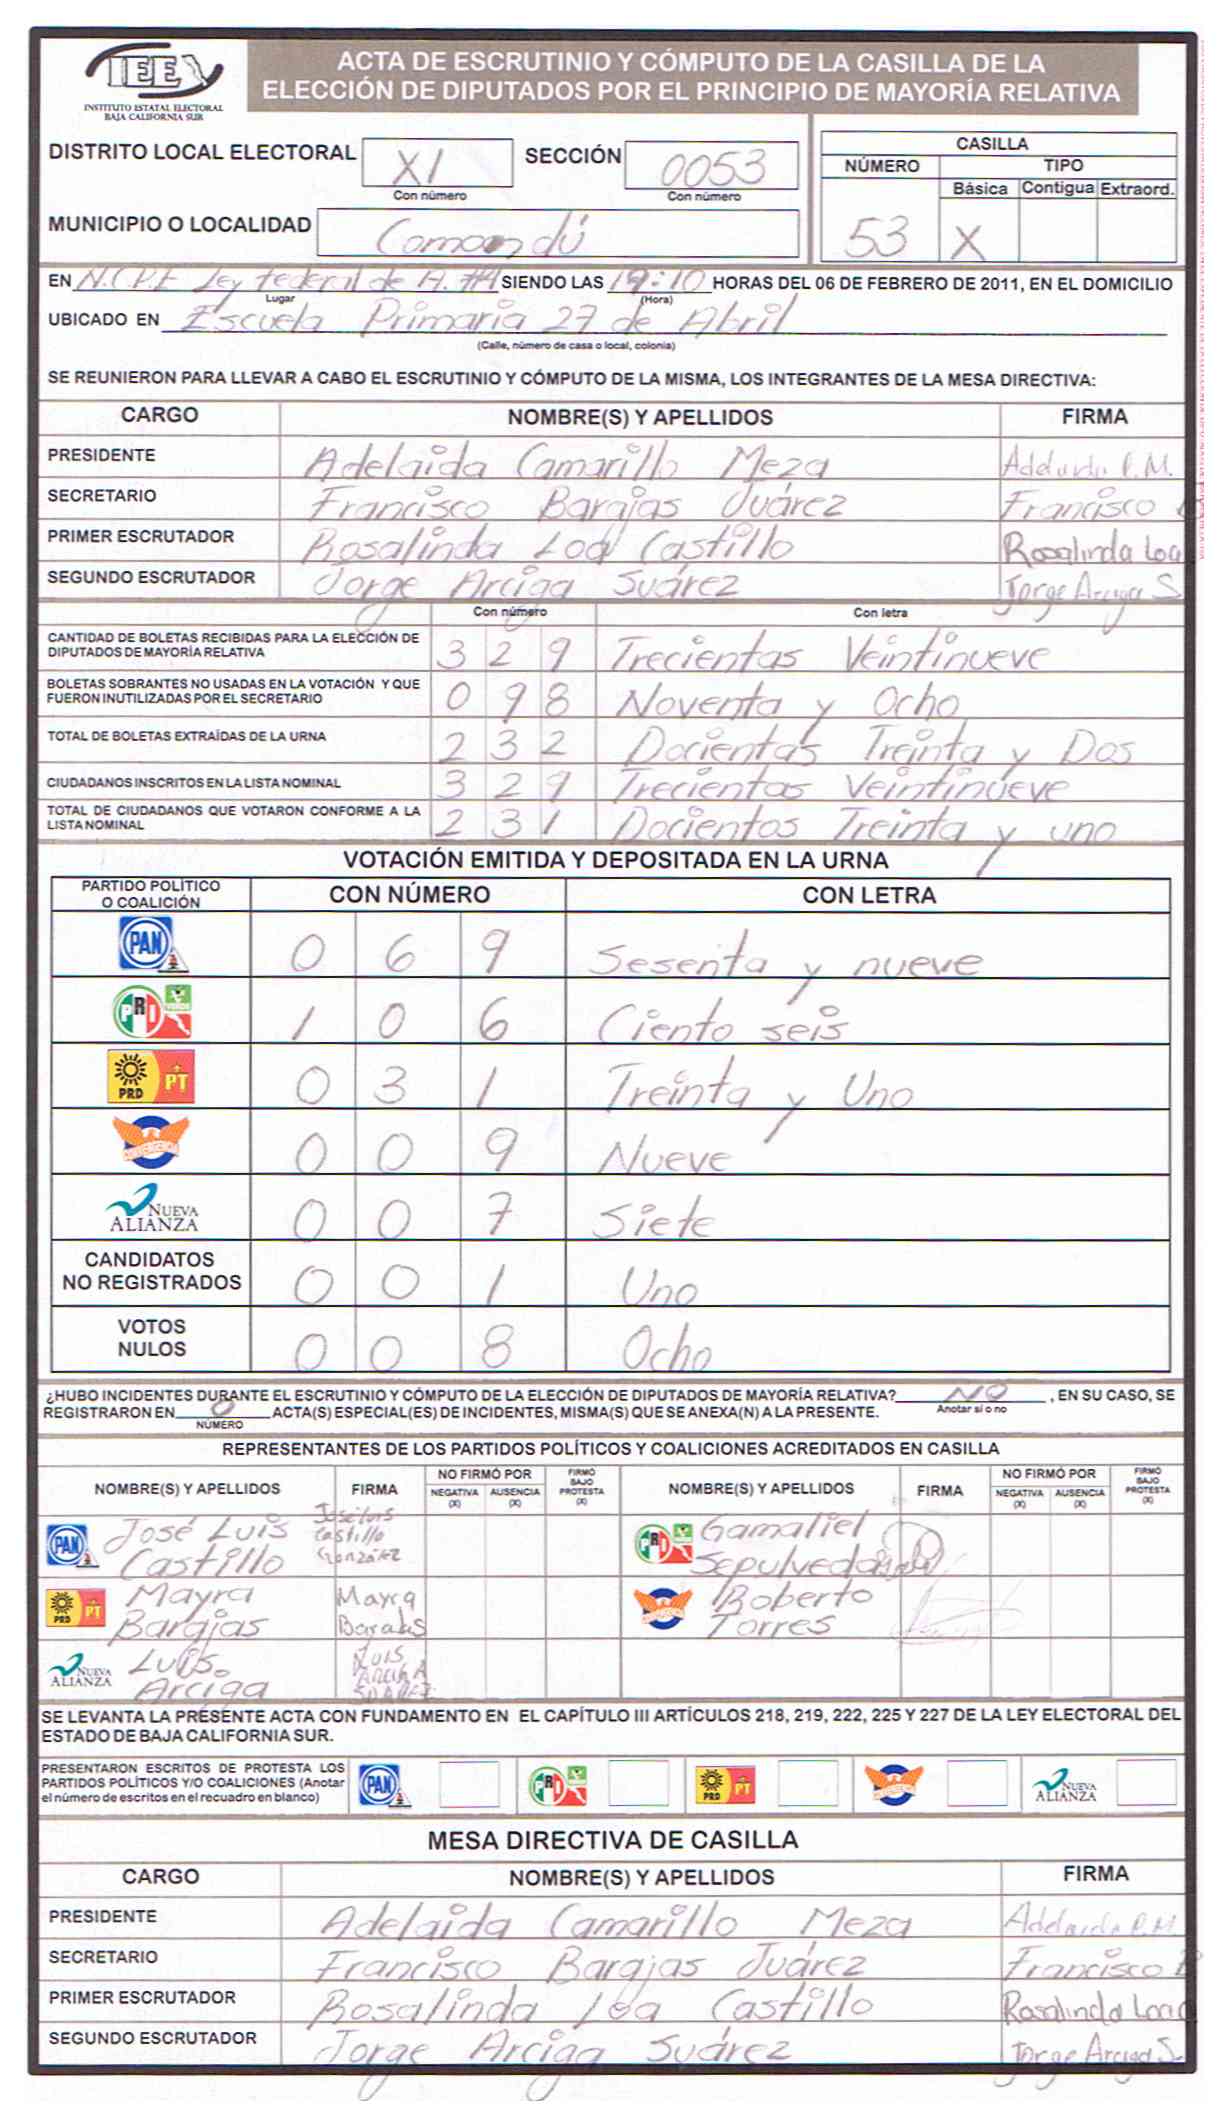 IEE
INSTITUTO ESTATAL ELECTORAL
BAJA CALIFORNIA SUR
ACTA DE ESCRUTINIO Y CÓMPUTO DE LA CASILLA DE LA
ELECCIÓN DE DIPUTADOS POR EL PRINCIPIO DE MAYORÍA RELATIVA
DISTRITO LOCAL ELECTORAL XI SECCIÓN 0053
Con número Con número
MUNICIPIO O LOCALIDAD Comondú
CASILLA
NÚMERO TIPO
Básica Contigua Extraord.
53 X
EN N.C.P.E Ley federal de A. #4 SIENDO LAS 19:10 HORAS DEL 06 DE FEBRERO DE 2011, EN EL DOMICILIO
Lugar (Hora)
UBICADO EN Escuela Primaria 27 de Abril
(Calle, número de casa o local, colonia)
SE REUNIERON PARA LLEVAR A CABO EL ESCRUTINIO Y CÓMPUTO DE LA MISMA, LOS INTEGRANTES DE LA MESA DIRECTIVA:
CARGO NOMBRE(S) Y APELLIDOS FIRMA
PRESIDENTE Adelaida Camarillo Meza
SECRETARIO Francisco Barajas Juárez Francisco
PRIMER ESCRUTADOR Rosalinda Loa Castillo Rosalinda Loa
SEGUNDO ESCRUTADOR Jorge Arciga Suárez Jorge Arciga S.
Con número Con letra
CANTIDAD DE BOLETAS RECIBIDAS PARA LA ELECCIÓN DE
DIPUTADOS DE MAYORÍA RELATIVA 3 2 9 Trecientas Veintinueve
BOLETAS SOBRANTES NO USADAS EN LA VOTACIÓN Y QUE
FUERON INUTILIZADAS POR EL SECRETARIO 0 9 8 Noventa y Ocho
TOTAL DE BOLETAS EXTRAÍDAS DE LA URNA 2 3 2 Docientas Treinta y Dos
CIUDADANOS INSCRITOS EN LA LISTA NOMINAL 3 2 9 Trecientas Veintinueve
TOTAL DE CIUDADANOS QUE VOTARON CONFORME A LA
LISTA NOMINAL 2 3 1 Docientos Treinta y uno
VOTACIÓN EMITIDA Y DEPOSITADA EN LA URNA
PARTIDO POLÍTICO
O COALICIÓN CON NÚMERO CON LETRA
PAN 0 6 9 Sesenta y nueve
PRI VERDE 1 0 6 Ciento seis
PRD PT 0 3 1 Treinta y Uno
CONVERGENCIA 0 0 9 Nueve
NUEVA
ALIANZA 0 0 7 Siete
CANDIDATOS
NO REGISTRADOS 0 0 1 Uno
VOTOS
NULOS 0 0 8 Ocho
¿HUBO INCIDENTES DURANTE EL ESCRUTINIO Y CÓMPUTO DE LA ELECCIÓN DE DIPUTADOS DE MAYORÍA RELATIVA? NO , EN SU CASO, SE
Anotar sí o no
REGISTRARON EN 0 ACTA(S) ESPECIAL(ES) DE INCIDENTES, MISMA(S) QUE SE ANEXA(N) A LA PRESENTE.
NÚMERO
REPRESENTANTES DE LOS PARTIDOS POLÍTICOS Y COALICIONES ACREDITADOS EN CASILLA
NOMBRE(S) Y APELLIDOS FIRMA NO FIRMÓ POR NEGATIVA (X) AUSENCIA (X) FIRMÓ BAJO PROTESTA (X) NOMBRE(S) Y APELLIDOS FIRMA NO FIRMÓ POR NEGATIVA (X) AUSENCIA (X) FIRMÓ BAJO PROTESTA (X)
PAN José Luis Castillo José Luis Castillo González PRI Gamaliel Sepulveda
PRD PT Mayra Barajas Mayra Barajas CONVERGENCIA Roberto Torres
NUEVA ALIANZA Luis Arciga Luis Arciga Suarez
SE LEVANTA LA PRESENTE ACTA CON FUNDAMENTO EN EL CAPÍTULO III ARTÍCULOS 218, 219, 222, 225 Y 227 DE LA LEY ELECTORAL DEL
ESTADO DE BAJA CALIFORNIA SUR.
PRESENTARON ESCRITOS DE PROTESTA LOS
PARTIDOS POLÍTICOS Y/O COALICIONES (Anotar
el número de escritos en el recuadro en blanco)
PAN PRI PRD PT CONVERGENCIA NUEVA ALIANZA
MESA DIRECTIVA DE CASILLA
CARGO NOMBRE(S) Y APELLIDOS FIRMA
PRESIDENTE Adelaida Camarillo Meza
SECRETARIO Francisco Barajas Juárez Francisco
PRIMER ESCRUTADOR Rosalinda Loa Castillo Rosalinda Loa
SEGUNDO ESCRUTADOR Jorge Arciga Suárez Jorge Arciga S.